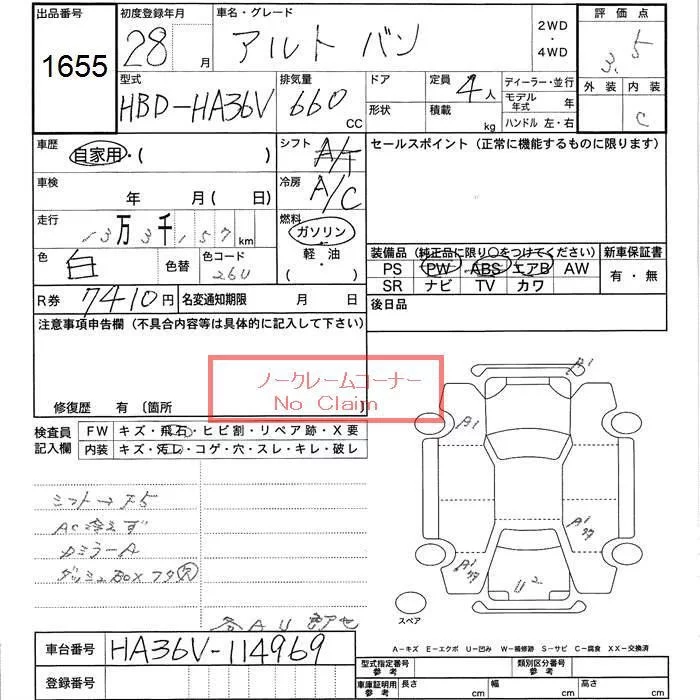 出品番号 初度登録年月 車名・グレード 2WD ・ 4WD 評価点
1655 28 月 アルト バン 3.5
型式 排気量 ドア 定員 4人 ディーラー・並行 外装 内装
HBD-HA36V 660 CC 形状 積載 kg モデル年式 年 C
ハンドル 左・右
車歴 自家用・( ) シフト A/T セールスポイント (正常に機能するものに限ります)
車検 年 月 ( 日) 冷房 A/C
走行 13万3千157km 燃料 ガソリン・軽油・( )
色 白 色替 色コード 26U
装備品 (純正品に限り○をつけてください) 新車保証書
PS PW ABS エアB AW 有・無
SR ナビ TV カワ
R券 7410円 名変通知期限 月 日 後日品
注意事項申告欄 (不具合内容等は具体的に記入して下さい)
ノークレームコーナー
No Claim
修復歴 有 〔箇所 〕
検査員記入欄 FW キズ・飛石・ヒビ割・リペア跡・X要
内装 キズ・汚レ・コゲ・穴・スレ・キレ・破レ
シフト→F5
AC冷えず
カミラーA
ダッシュBOXフタ欠
各AU
A1
A1
A1
A1
U2
スペア
A－キズ E－エクボ U－凹み W－補修跡 S－サビ C－腐食 XX－交換済
車台番号 HA36V-114969 型式指定番号 参考 類別区分番号 参考
登録番号 車庫証明用 参考 長さ cm 幅 cm 高さ cm